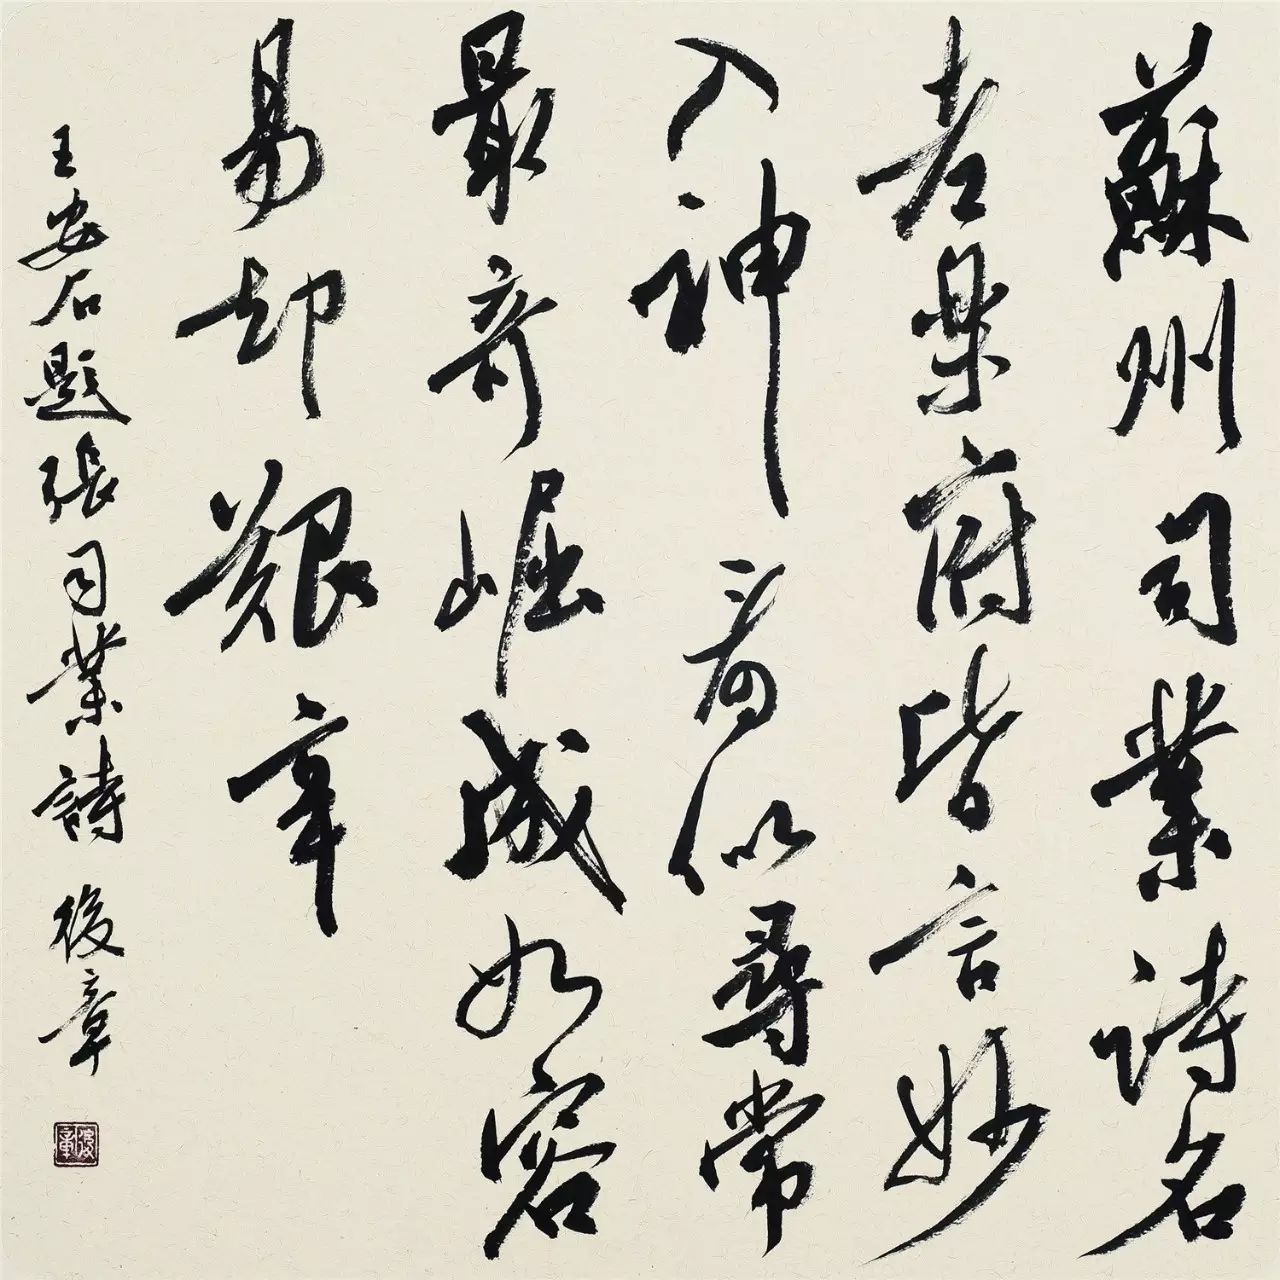 蘇州司業詩名
老樂府皆言妙
入神看似尋常
最奇崛成如容
易却艱辛
王安石題張司業詩 後章